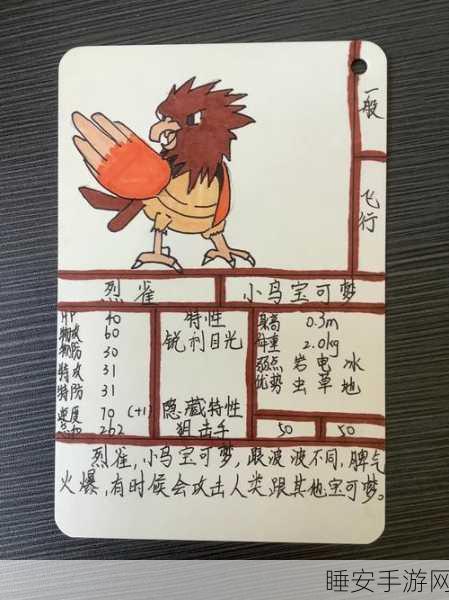 一般
飞行
烈雀
小鸟宝可梦
HP 40
物攻 60
物防 30
特攻 31
特防 31
速度 70 (+1)
总和 262
特性
锐利目光
隐藏特性
狙击手
身高 0.3m
体重 2.0kg
弱点 岩 电 冰
优势 虫 草 地
50 50
烈雀,小鸟宝可梦,跟波波不同,脾气
火爆,有时候会攻击人类跟其他宝可梦。
睡安手游网